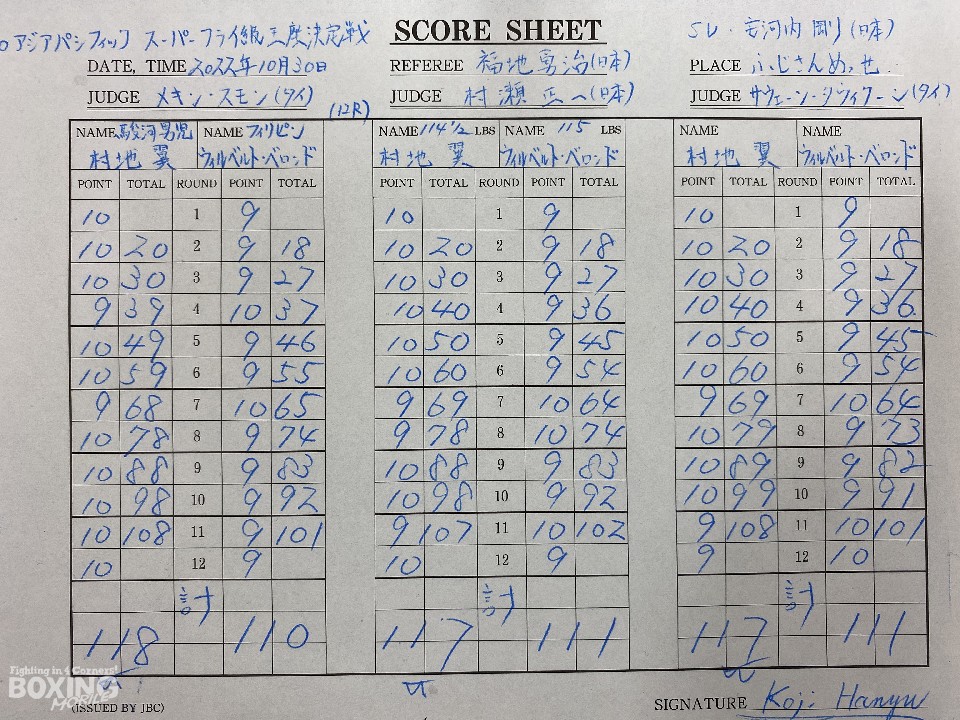 Oアジアパシフィック スーパーフライ級王座決定戦
SCORE SHEET
SV・毛河内 剛(日本)
DATE, TIME 2022年10月30日
REFEREE 福地勇治(日本)
PLACE ふじさんめっせ
JUDGE メキン・スモン(タイ)
JUDGE 村瀬正一(日本)
JUDGE サウェーン・タウィクーン(タイ)
(12R)
NAME 駿河男児 NAME フィリピン NAME 114 1/2 LBS NAME 115 LBS NAME NAME
村地 翼 ウィルベルト・ベロンド 村地 翼 ウィルベルト・ベロンド 村地 翼 ウィルベルト・ベロンド
POINT TOTAL ROUND POINT TOTAL POINT TOTAL ROUND POINT TOTAL POINT TOTAL ROUND POINT TOTAL
10 1 9 10 1 9 10 1 9
10 20 2 9 18 10 20 2 9 18 10 20 2 9 18
10 30 3 9 27 10 30 3 9 27 10 30 3 9 27
9 39 4 10 37 10 40 4 9 36 10 40 4 9 36
10 49 5 9 46 10 50 5 9 45 10 50 5 9 45
10 59 6 9 55 10 60 6 9 54 10 60 6 9 54
9 68 7 10 65 9 69 7 10 64 9 69 7 10 64
10 78 8 9 74 9 78 8 10 74 10 79 8 9 73
10 88 9 9 83 10 88 9 9 83 10 89 9 9 82
10 98 10 9 92 10 98 10 9 92 10 99 10 9 91
10 108 11 9 101 9 107 11 10 102 9 108 11 10 101
10 12 9 10 12 9 9 12 10
計 計 計
118 110 117 111 117 111
W W W
Fighting in 4 Corners!
BOXING
MOBILE
(ISSUED BY JBC)
SIGNATURE Koji Hanyu